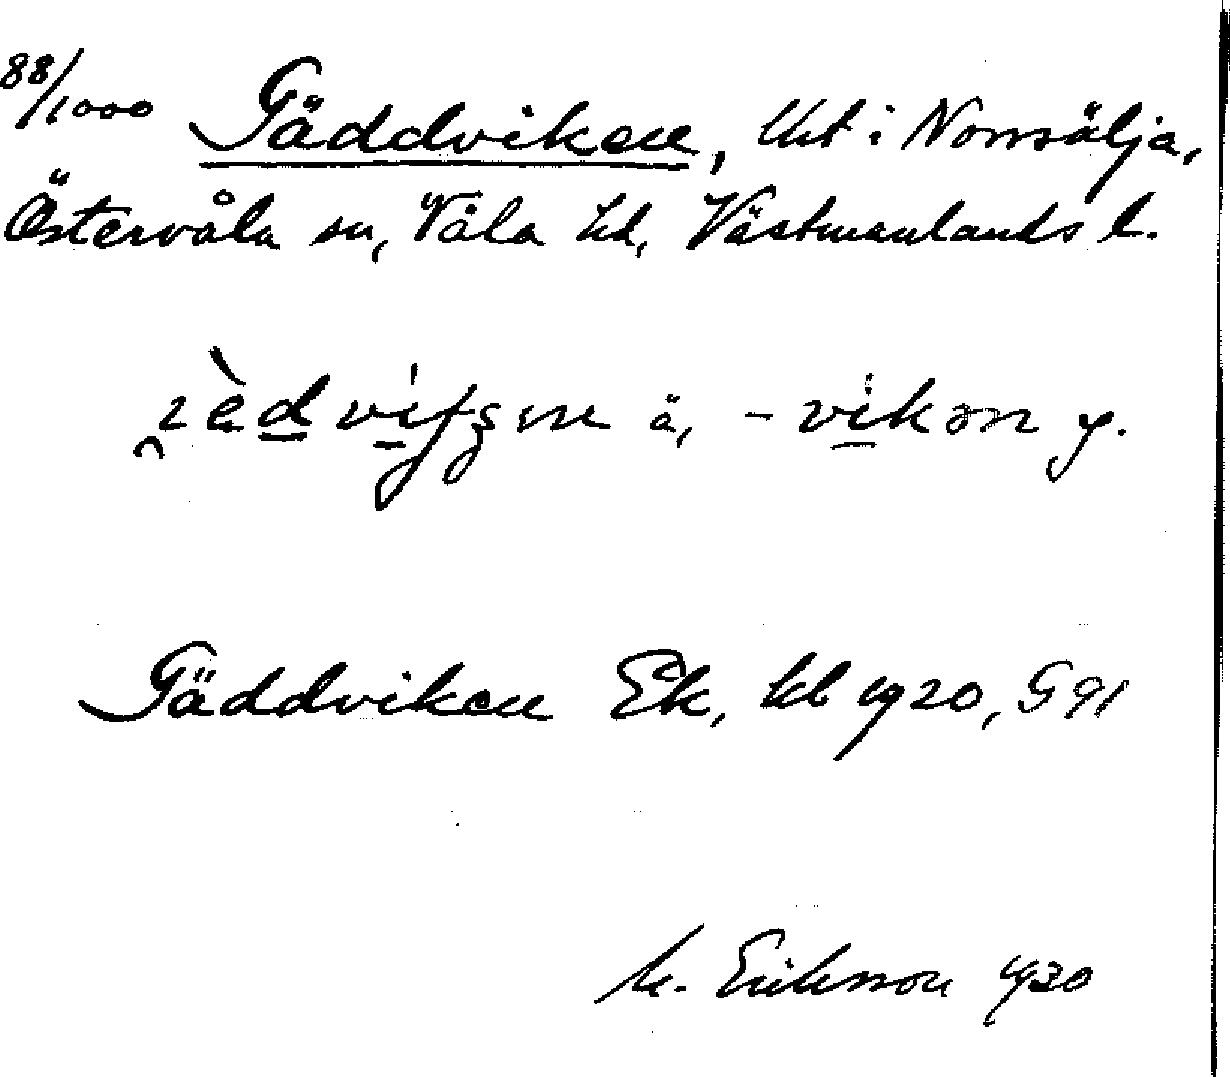 88/1000 Gäddviken, lht i Norrsälja,
Östervåla sn, Våla hd, Västmanlands l.
ä, -vikən y.
Gäddviken Ek, kb 1920, S 91
M. Eriksson 1930